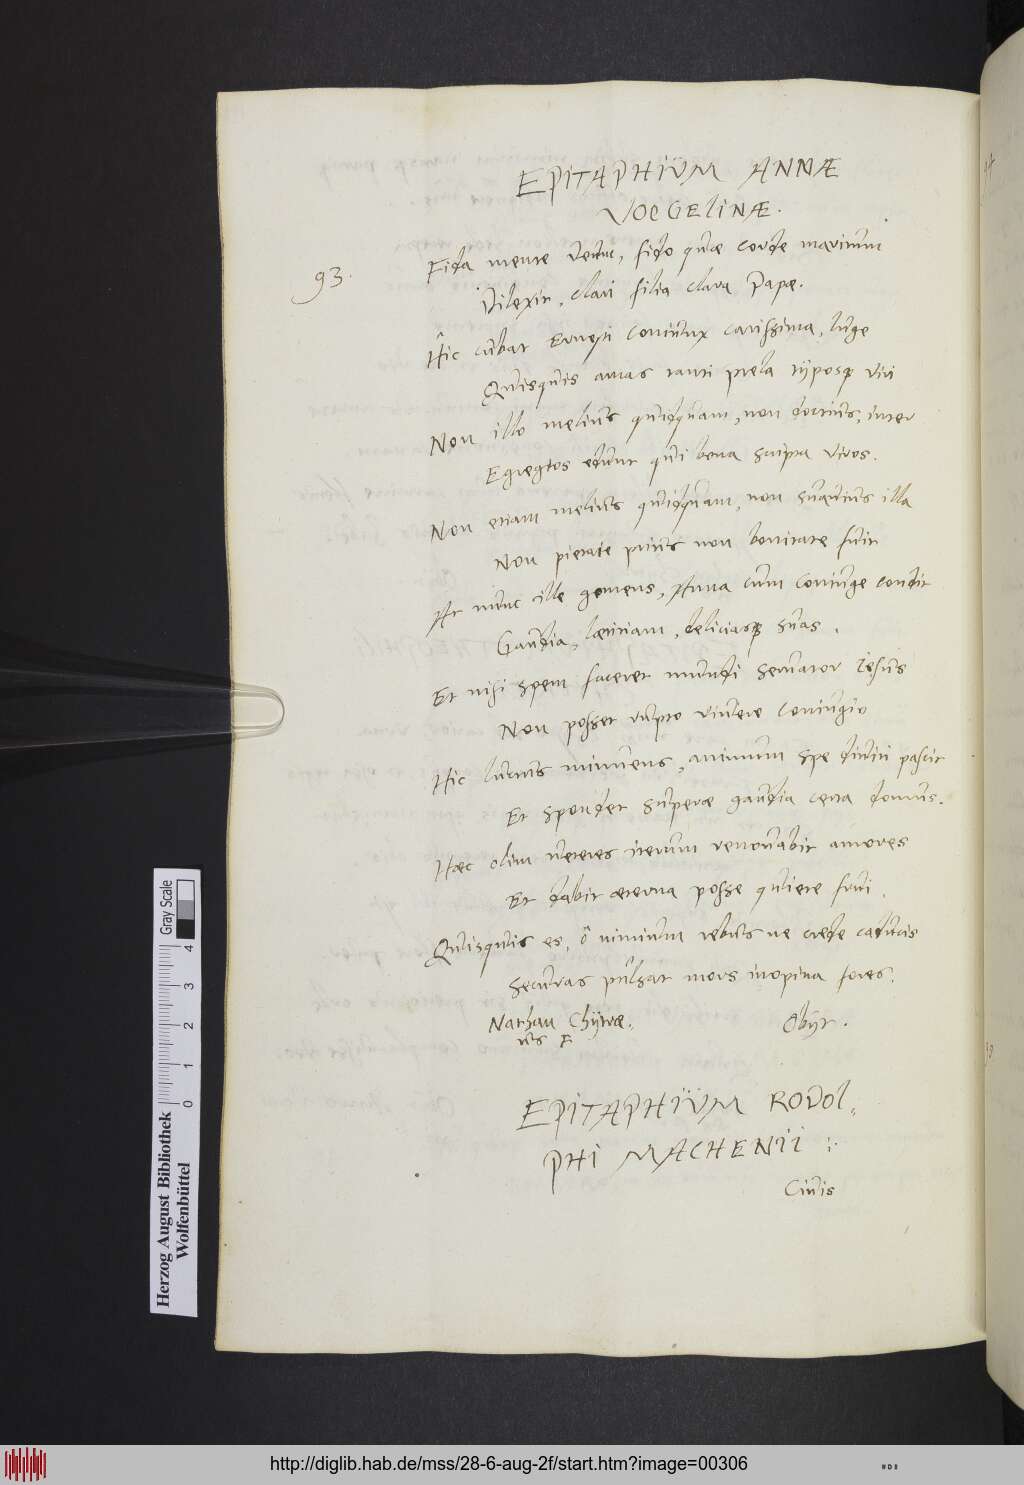 EPITAPHIUM ANNÆ
VOEGELINÆ.
93.
Fida mente deum, fido quæ corde maritum
Dilexit, clari filia clara Papæ.
Hîc cubat Ernesti coniunx carissima, luge
Quisquis amas tanti præla typosq viri
Non illo melius quidquam, non doctius, inter
Egregios edunt qui bona scripta viros.
Non etiam melius quidquam, non suauius illa
Non pietate prius non bonitate fuit
At nunc ille gemens, Anna cum coniuge condit
Gaudia, lætitiam, deliciasq suas.
Et nisi spem faceret mundi seruator Iesus
Non posset rupto viuere coniugio
Hic luctus minuens, animum spe diuiti pascit
Et spondet superæ gaudia certa domus.
Hæc olim veteres iterum renouabit amores
Et dabit æterna posse quiete frui.
Quisquis es, ô nimium rebus ne crede caducis
Securas pulsat mors inopina fores.
Nathan Chÿtræ.
us F
Obÿt.
EPITAPHIUM RODOL,
PHI MACHENII :.
Ciuis
Gray Scale
0 1 2 3 4
Herzog August Bibliothek
Wolfenbüttel
http://diglib.hab.de/mss/28-6-aug-2f/start.htm?image=00306